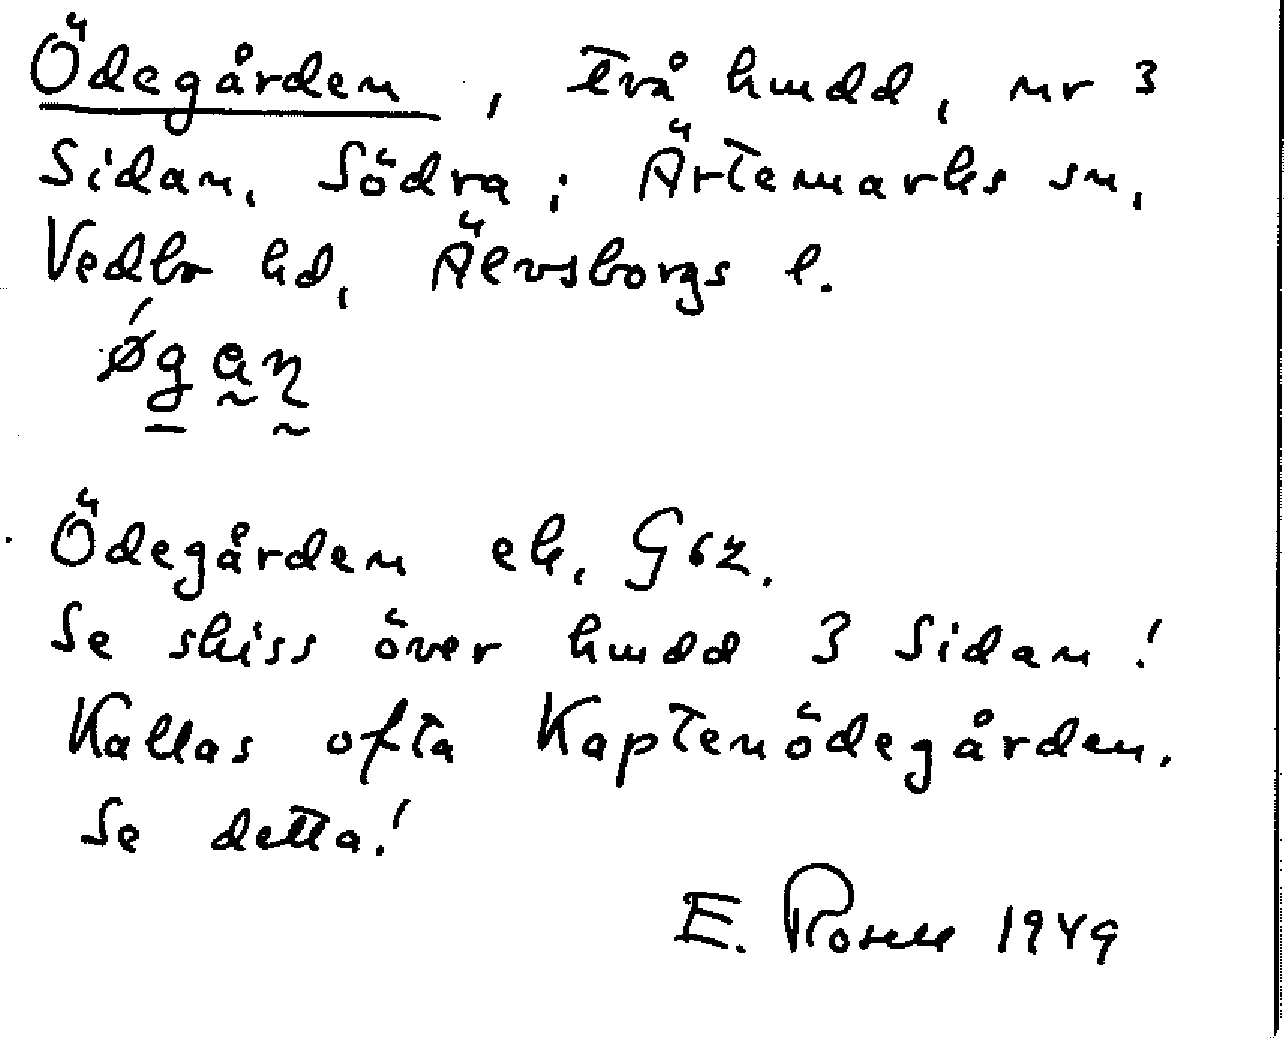 Ödegården, två hmdd, nr 3
Sidan, Södra; Ärtemarks sn,
Vedbo hd, Älvsborgs l.
Ödegården ek. G62.
Se skiss över hmdd 3 Sidan!
Kallas ofta Kaptenödegården.
Se detta!
E. Rosell 1949